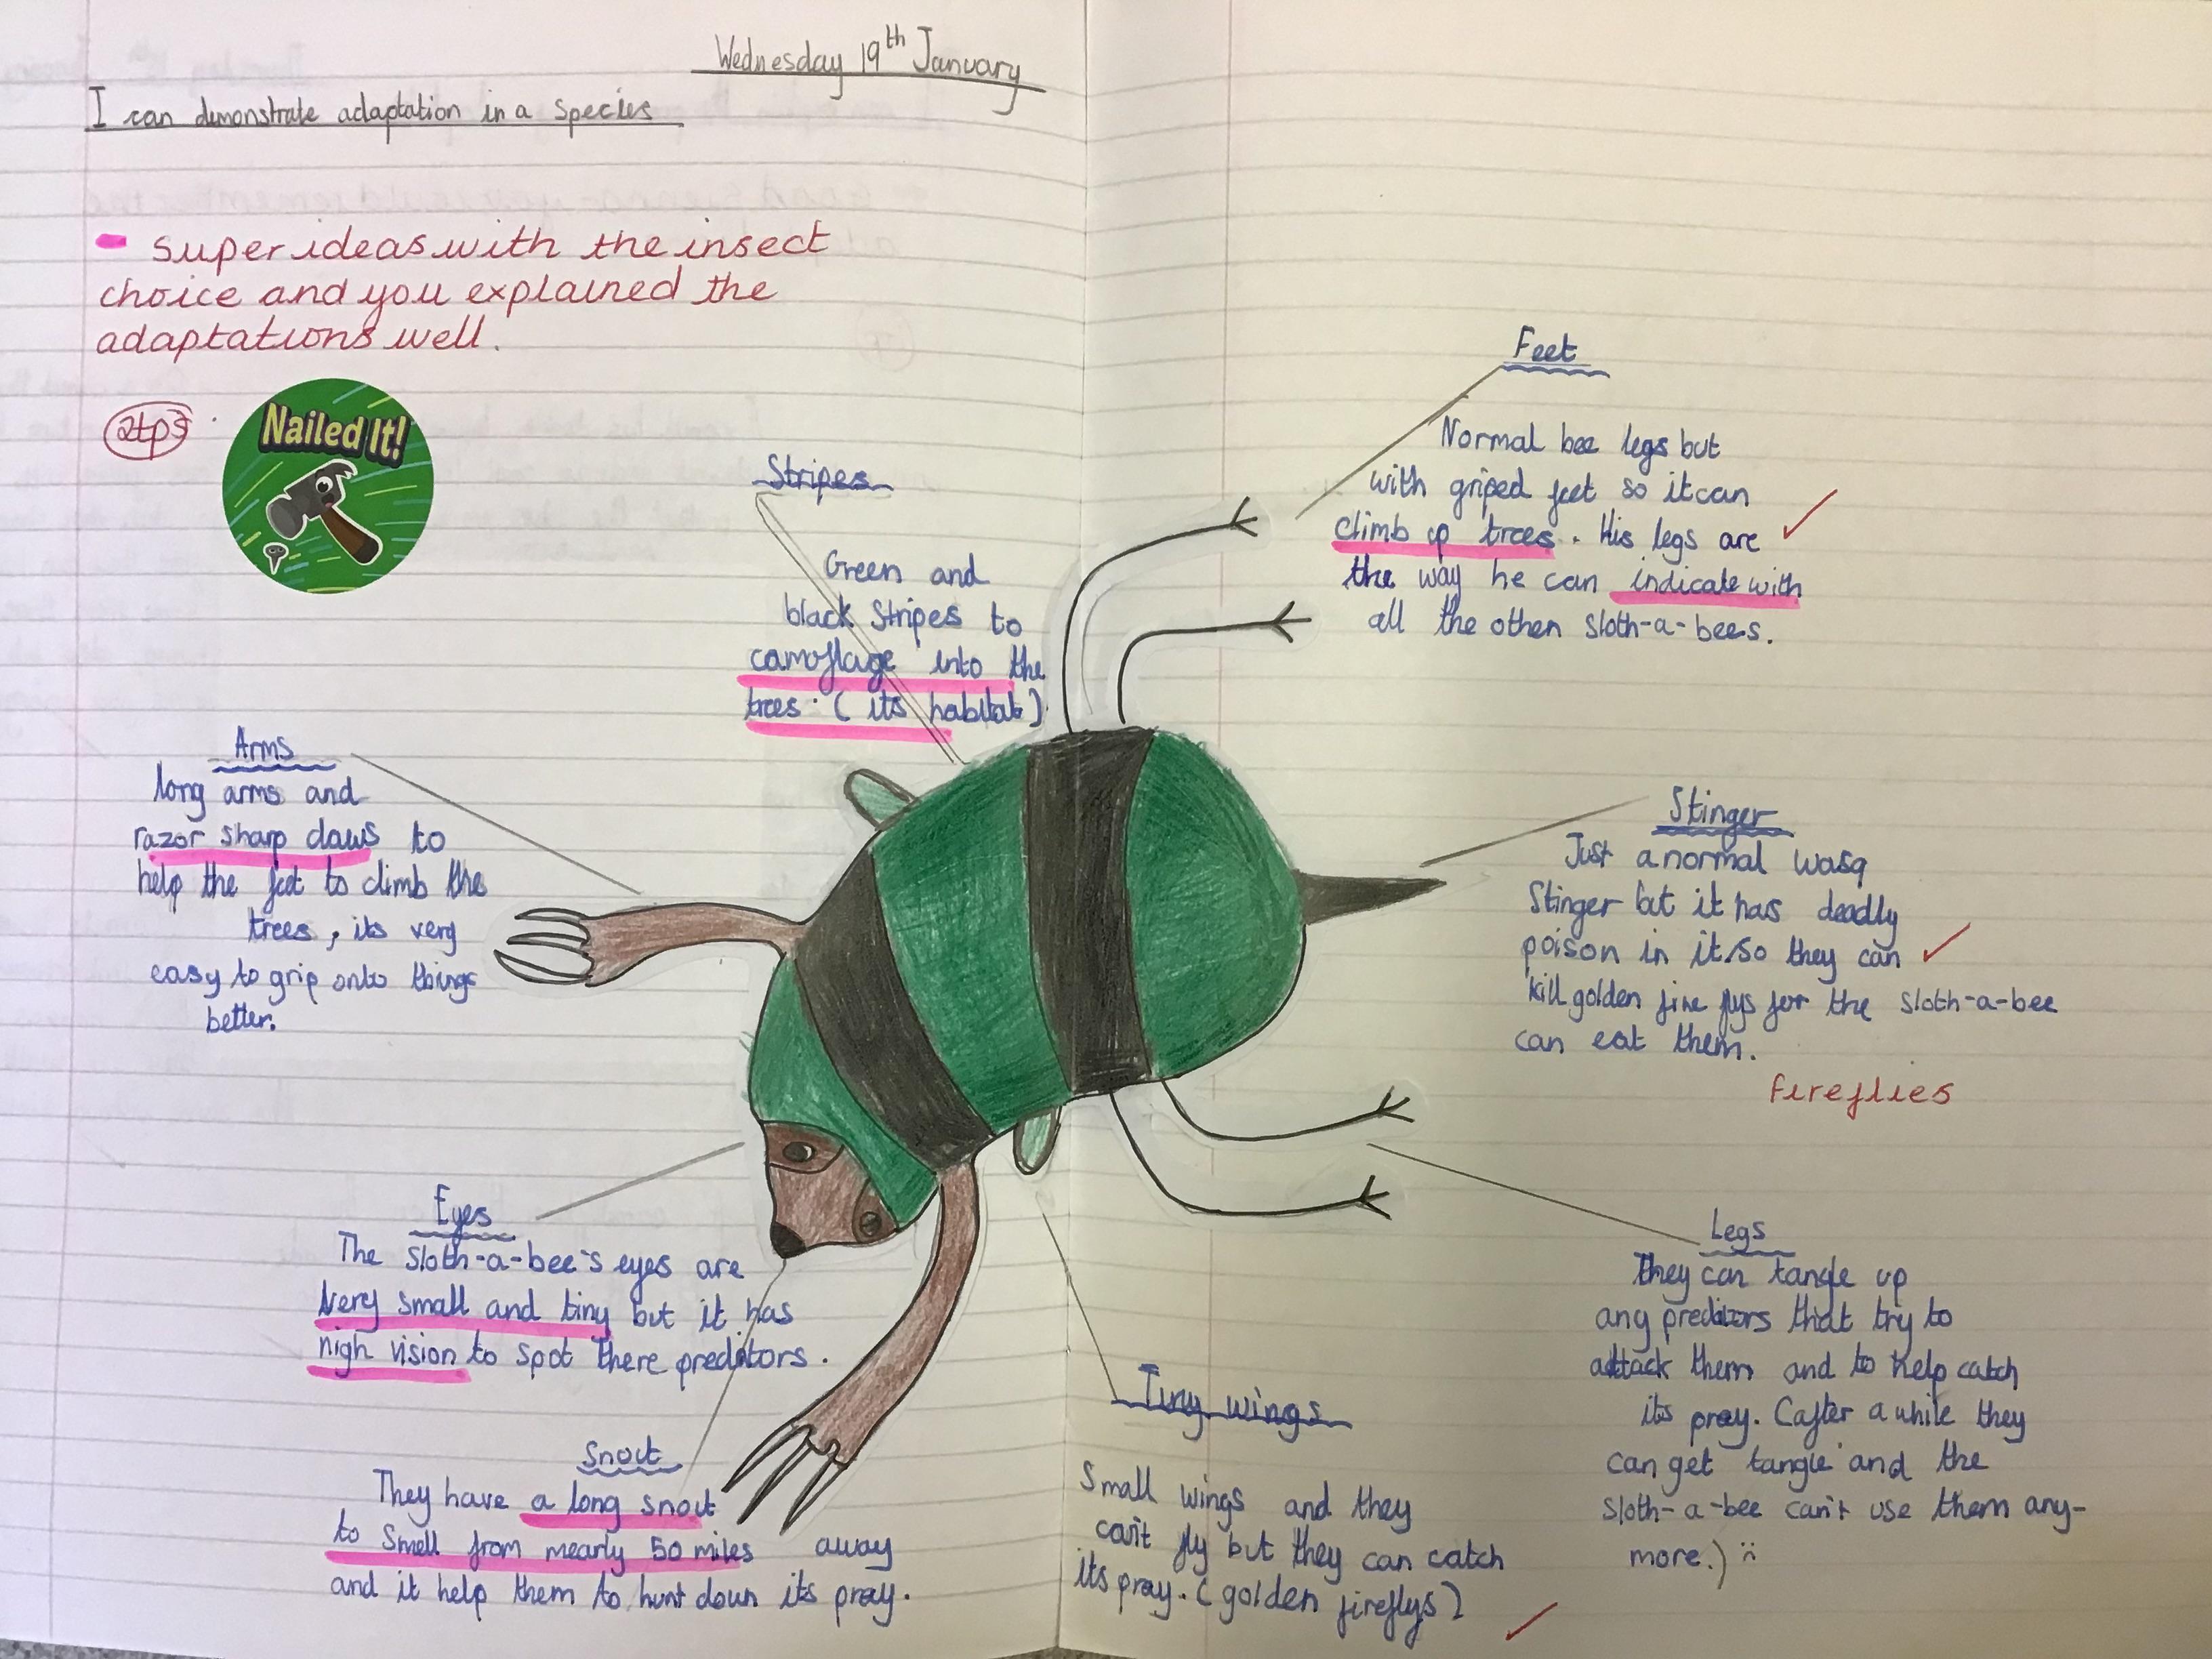 Wednesday 19th January
I can demonstrate adaptation in a Species
- Super ideas with the insect
choice and you explained the
adaptations well.
2tps
Nailed It!
Stripes
Green and
black Stripes to
camoflage into the
trees. (its habitat)
Feet
Normal bee legs but
with griped feet so it can
climb up trees. His legs are
the way he can indicate with
all the other sloth-a-bees.
Arms
long arms and
razor sharp claws to
help the feet to climb the
trees, its very
easy to grip onto things
better.
Stinger
Just a normal wasq
Stinger but it has deadly
poison in it so they can
kill golden fire flys for the sloth-a-bee
can eat them.
fireflies
Eyes
The sloth-a-bee's eyes are
very small and tiny but it has
nigh vision to spot there preditors.
Legs
They can tangle up
any preditors that try to
attack them and to help catch
its pray. (after a while they
can get tangle and the
sloth-a-bee can't use them any-
more.) :(
Snout
They have a long snout
to smell from nearly 50 miles away
and it help them to hunt down its pray.
Tiny wings
Small wings and they
can't fly but they can catch
its pray. (golden fireflys)